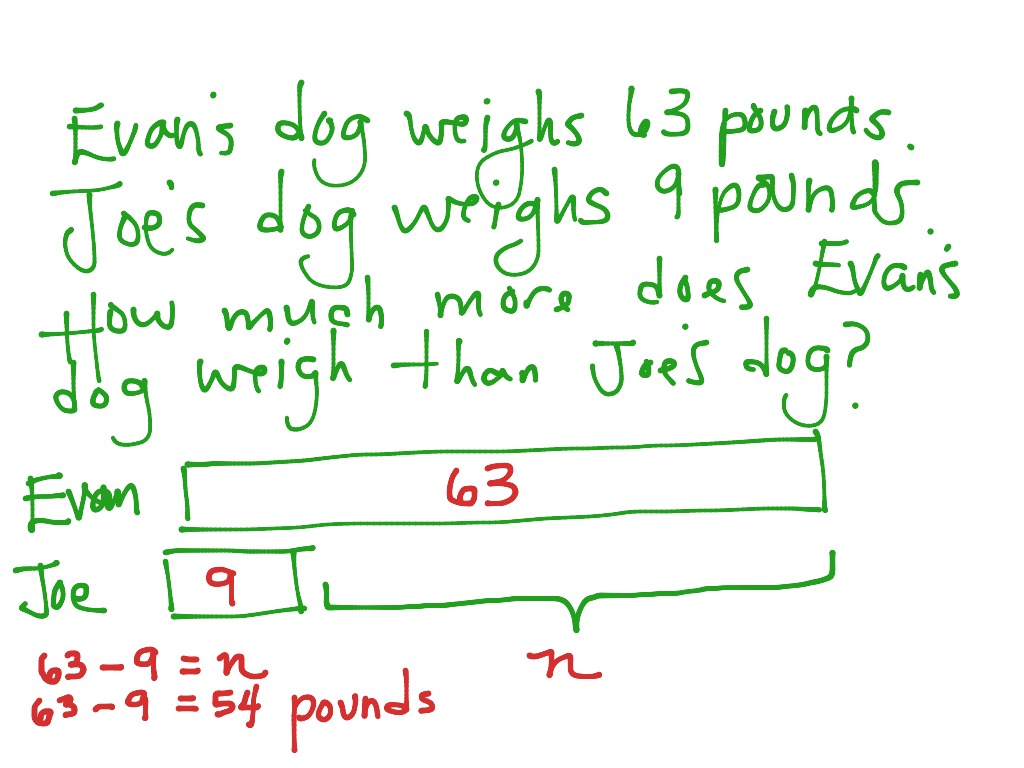 Evan's dog weighs 63 pounds.
Joe's dog weighs 9 pounds.
How much more does Evan's
dog weigh than Joe's dog?
Evan 63
Joe 9
n
63 - 9 = n
63 - 9 = 54 pounds